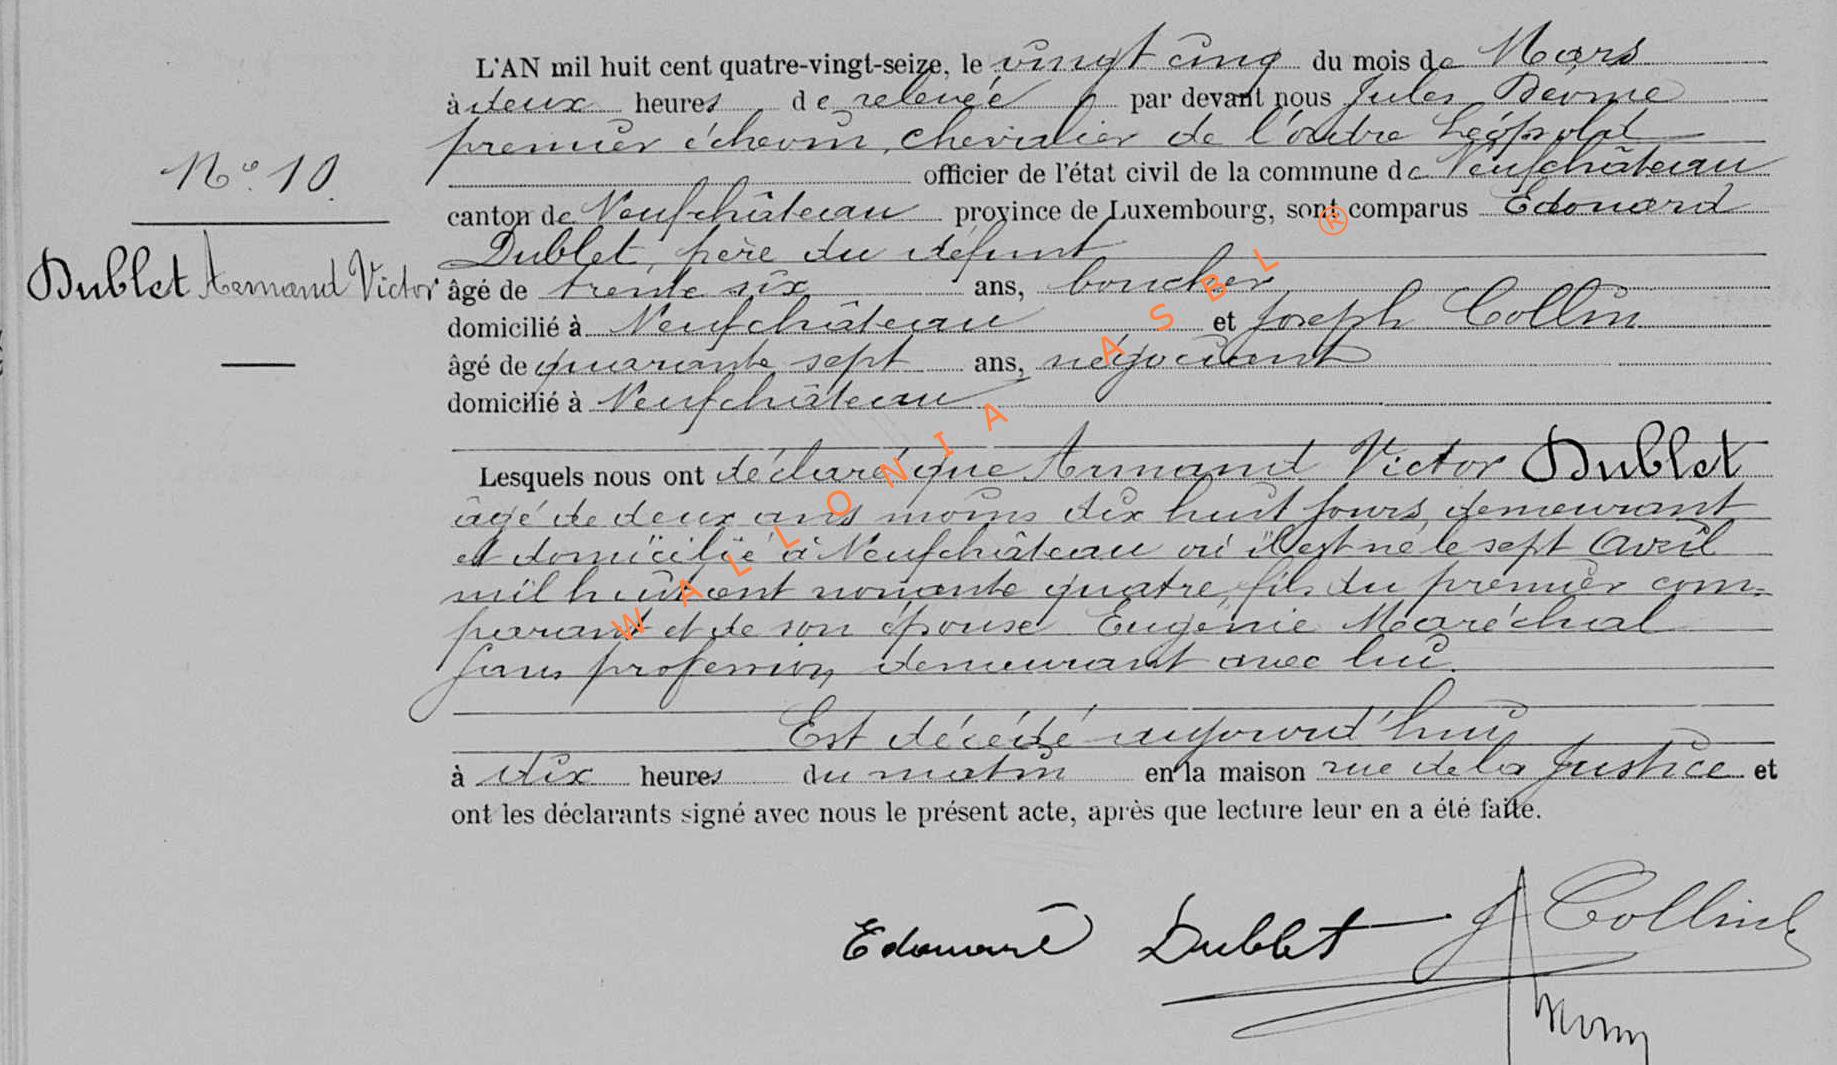 L'AN mil huit cent quatre-vingt-seize, le vingt cinq du mois de Mars
à deux heures de relevée par devant nous Jules
premier échevin, chevalier de l'ordre Léopold
N° 10
officier de l'état civil de la commune de Neufchâteau
canton de Neufchâteau province de Luxembourg, sont comparus Edouard
Dublet, père du défunt
Dublet Armand Victor
âgé de trente six ans, boucher
domicilié à Neufchâteau et Joseph Collin
âgé de quarante sept ans, négociant
domicilié à Neufchâteau
Lesquels nous ont déclaré que Armand Victor Dublet
âgé de deux ans moins dix huit jours, demeurant
et domicilié à Neufchâteau où il est né le sept Avril
mil huit cent nonante quatre, fils du premier com-
parant et de son épouse Eugénie Maréchal
sans profession, demeurant avec lui.
Est décédé aujourd'hui
à dix heures du matin en la maison rue de la Justice et
ont les déclarants signé avec nous le présent acte, après que lecture leur en a été faite.
Edouard Dublet J Collin
WALLONIA ASBL ®